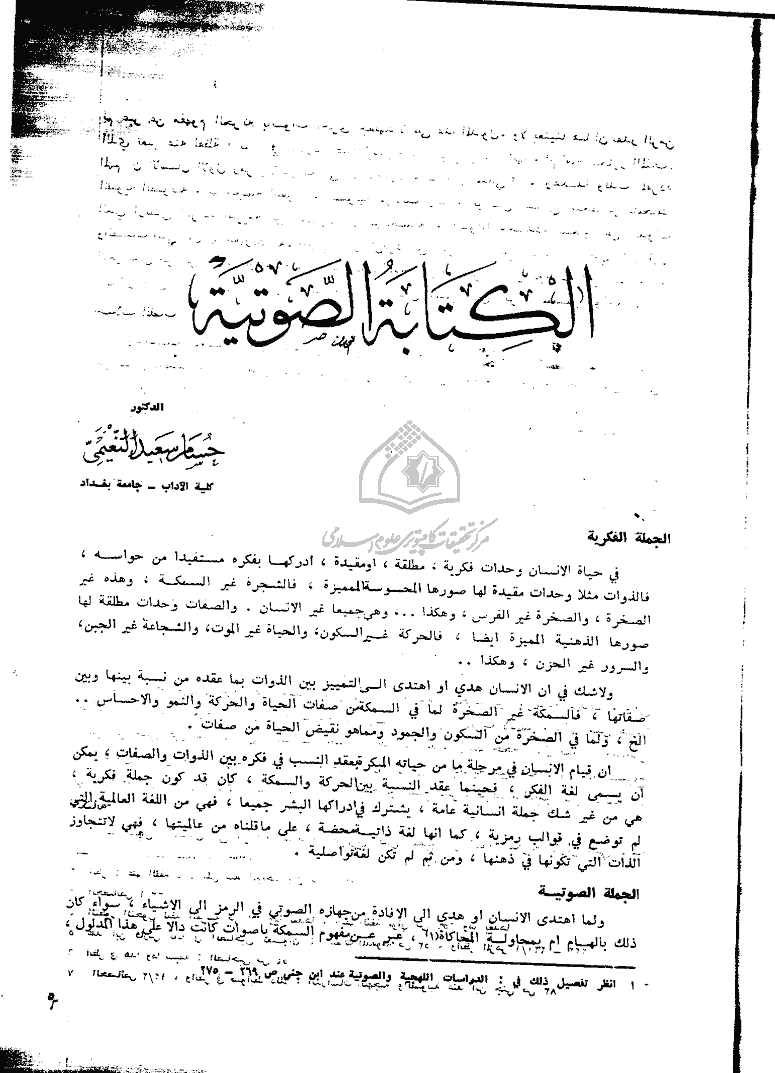 الكتابة الصوتية
الدكتور
حسام سعيد النعيمي
كلية الآداب ـ جامعة بغداد
مركز تحقيقات كامپيوترى علوم اسلامى
الجملة الفكرية
في حياة الانسان وحدات فكرية ، مطلقة ، اومقيدة ، ادركها بفكره مستفيدا من حواسه ،
فالذوات مثلا وحدات مقيدة لها صورها المحسوسة المميزة ، فالشجرة غير السمكة ، وهذه غير
الصخرة ، والصخرة غير الفرس ، وهكذا ... وهي جميعا غير الانسان . والصفات وحدات مطلقة لها
صورها الذهنية المميزة ايضا ، فالحركة غير السكون، والحياة غير الموت، والشجاعة غير الجبن،
والسرور غير الحزن ، وهكذا ..
ولاشك في ان الانسان هدي او اهتدى الى التمييز بين الذوات بما عقده من نسبة بينها وبين
صفاتها ، فالسمكة غير الصخرة لما في السمكة من صفات الحياة والحركة والنمو والاحساس ..
الخ ، ولما في الصخرة من السكون والجمود ومماهو نقيض الحياة من صفات .
ان قيام الانسان في مرحلة ما من حياته المبكرة بعقد النسب في فكره بين الذوات والصفات ، يمكن
ان يسمى لغة الفكر ، فحينما عقد النسبة بين الحركة والسمكة ، كان قد كون جملة فكرية ،
هي من غير شك جملة انسانية عامة ، يشترك في ادراكها البشر جميعا ، فهي من اللغة العالمية التي
لم توضع في قوالب رمزية ، كما انها لغة ذاتية محضة ، على ماقلناه من عالميتها ، فهي لاتتجاوز
الذات التي تكونها في ذهنها ، ومن ثم لم تكن لغة تواصلية .
الجملة الصوتية
ولما اهتدى الانسان او هدي الى الافادة من جهازه الصوتي في الرمز الى الاشياء ، سواء كان
ذلك بالهام ام بمحاولة المحاكاة(١) ، عبر عن مفهوم السمكة باصوات كانت دالا على هذا المدلول ،
١ انظر تفصيل ذلك في : الدراسات اللهجية والصوتية عند ابن جني ص ٢٦٩ – ٢٧٥